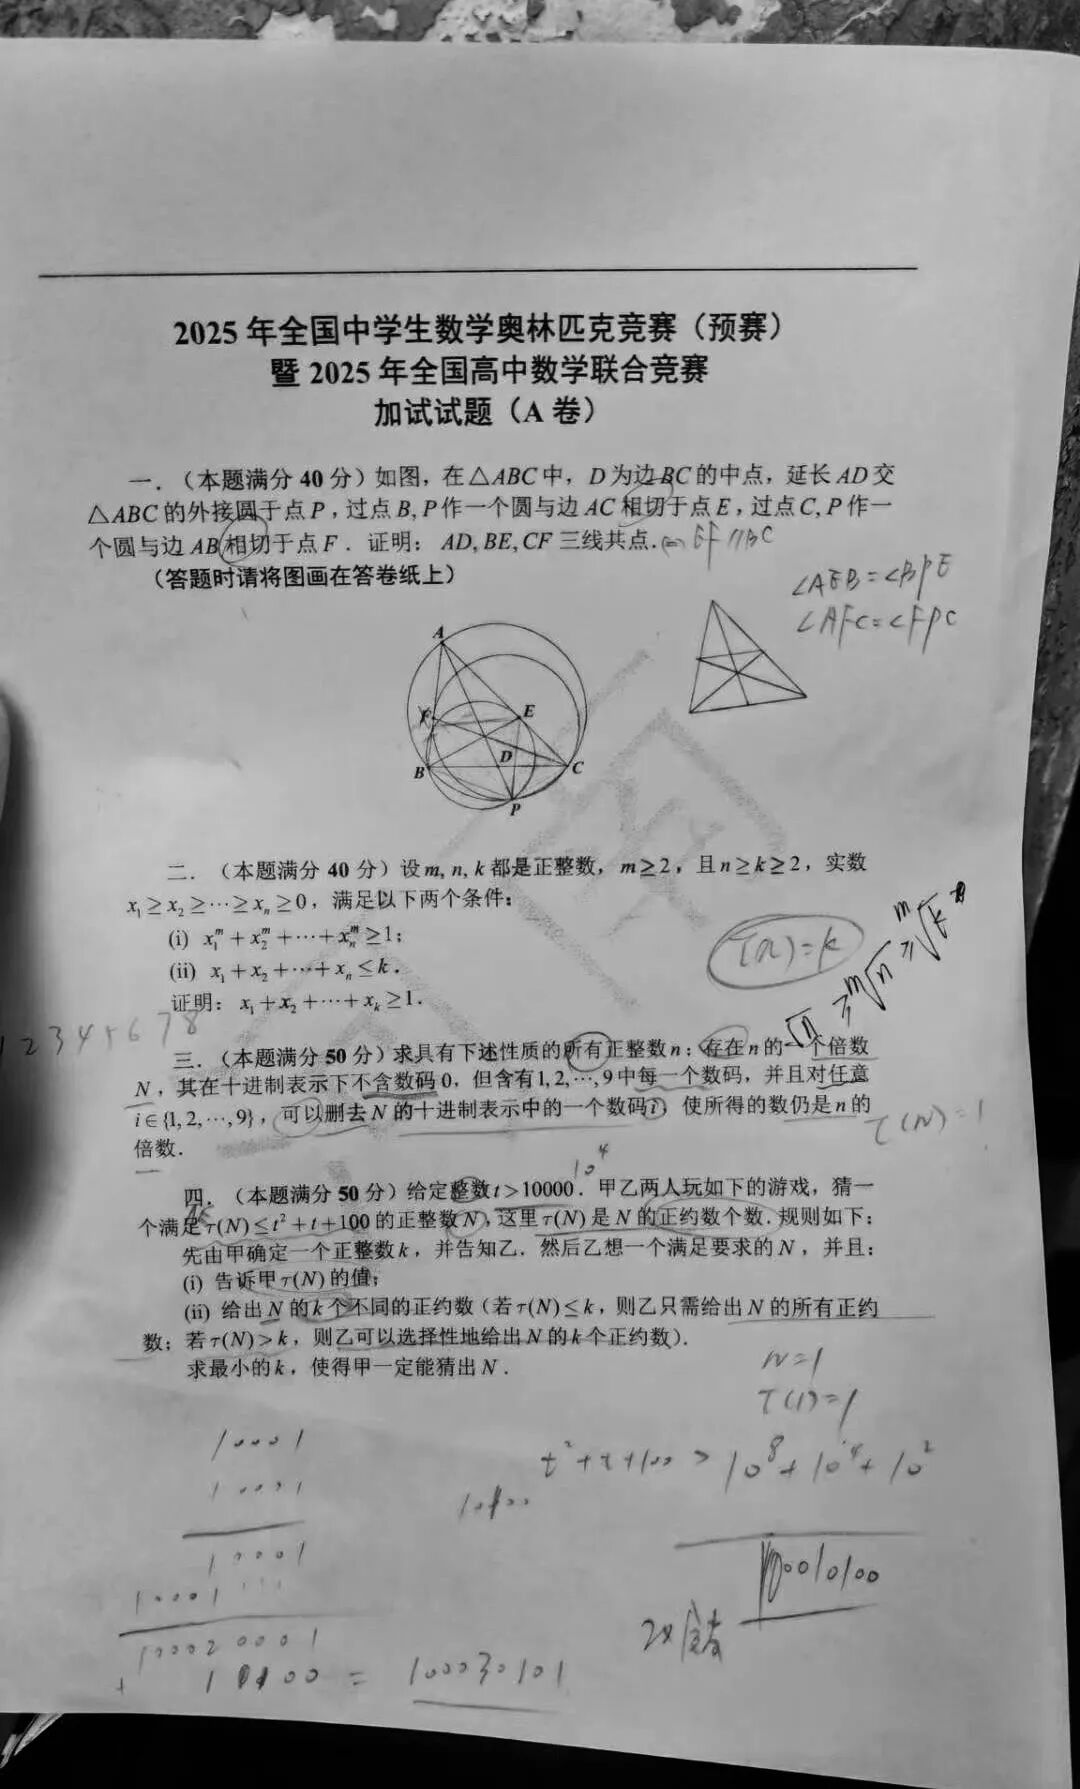 2025 年全国中学生数学奥林匹克竞赛（预赛）
暨 2025 年全国高中数学联合竞赛
加试试题（A 卷）
一．（本题满分 40 分）如图，在△ABC 中，D 为边 BC 的中点，延长 AD 交
△ABC 的外接圆于点 P，过点 B, P 作一个圆与边 AC 相切于点 E，过点 C, P 作一
个圆与边 AB 相切于点 F．证明：AD, BE, CF 三线共点. EF // BC
（答题时请将图画在答卷纸上）
∠AEB = ∠BPE
∠AFC = ∠FPC
A
F
E
D
B
C
P
二．（本题满分 40 分）设 m, n, k 都是正整数，m≥2，且 n≥k≥2，实数
x₁≥x₂≥⋯≥xₙ≥0，满足以下两个条件：
(i) x₁ᵐ+x₂ᵐ+⋯+xₙᵐ≥1；
(ii) x₁+x₂+⋯+xₙ≤k．
证明：x₁+x₂+⋯+xₖ≥1．
τ(n)=k
1 2 3 4 5 6 7 8
三．（本题满分 50 分）求具有下述性质的所有正整数 n：存在 n 的一个倍数
N，其在十进制表示下不含数码 0，但含有 1, 2, ⋯, 9 中每一个数码，并且对任意
i∈{1, 2, ⋯, 9}，可以删去 N 的十进制表示中的一个数码 i，使所得的数仍是 n 的
倍数．
τ(N)=1
10⁴
四．（本题满分 50 分）给定整数 t>10000．甲乙两人玩如下的游戏，猜一
个满足 τ(N)≤t²+t+100 的正整数 N，这里 τ(N) 是 N 的正约数个数．规则如下：
先由甲确定一个正整数 k，并告知乙．然后乙想一个满足要求的 N，并且：
(i) 告诉甲 τ(N) 的值；
(ii) 给出 N 的 k 个不同的正约数（若 τ(N)≤k，则乙只需给出 N 的所有正约
数；若 τ(N)>k，则乙可以选择性地给出 N 的 k 个正约数）．
求最小的 k，使得甲一定能猜出 N．
N=1
τ(1)=1
t²+t+100 > 10⁸+10⁴+10²
10001
10001
10001
10001
100020001
= 100030101